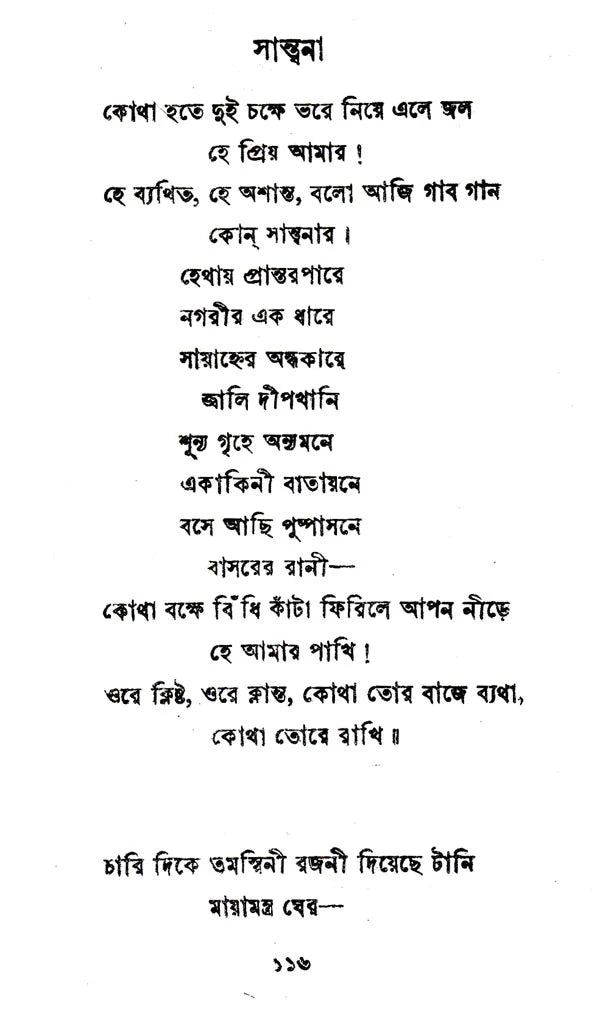 সান্ত্বনা
কোথা হতে দুই চক্ষে ভরে নিয়ে এলে জল
হে প্রিয় আমার !
হে ব্যথিত, হে অশান্ত, বলো আজি গাব গান
কোন্ সান্ত্বনার।
হেথায় প্রান্তরপারে
নগরীর এক ধারে
সায়াহ্নের অন্ধকারে
জ্বালি দীপখানি
শূন্য গৃহে অন্যমনে
একাকিনী বাতায়নে
বসে আছি পুষ্পাসনে
বাসরের রানী—
কোথা বক্ষে বিঁধি কাঁটা ফিরিলে আপন নীড়ে
হে আমার পাখি !
ওরে ক্লিষ্ট, ওরে ক্লান্ত, কোথা তোর বাজে ব্যথা,
কোথা তোরে রাখি॥
চারি দিকে তমস্বিনী রজনী দিয়েছে টানি
মায়ামন্ত্র ঘের—
১১৬